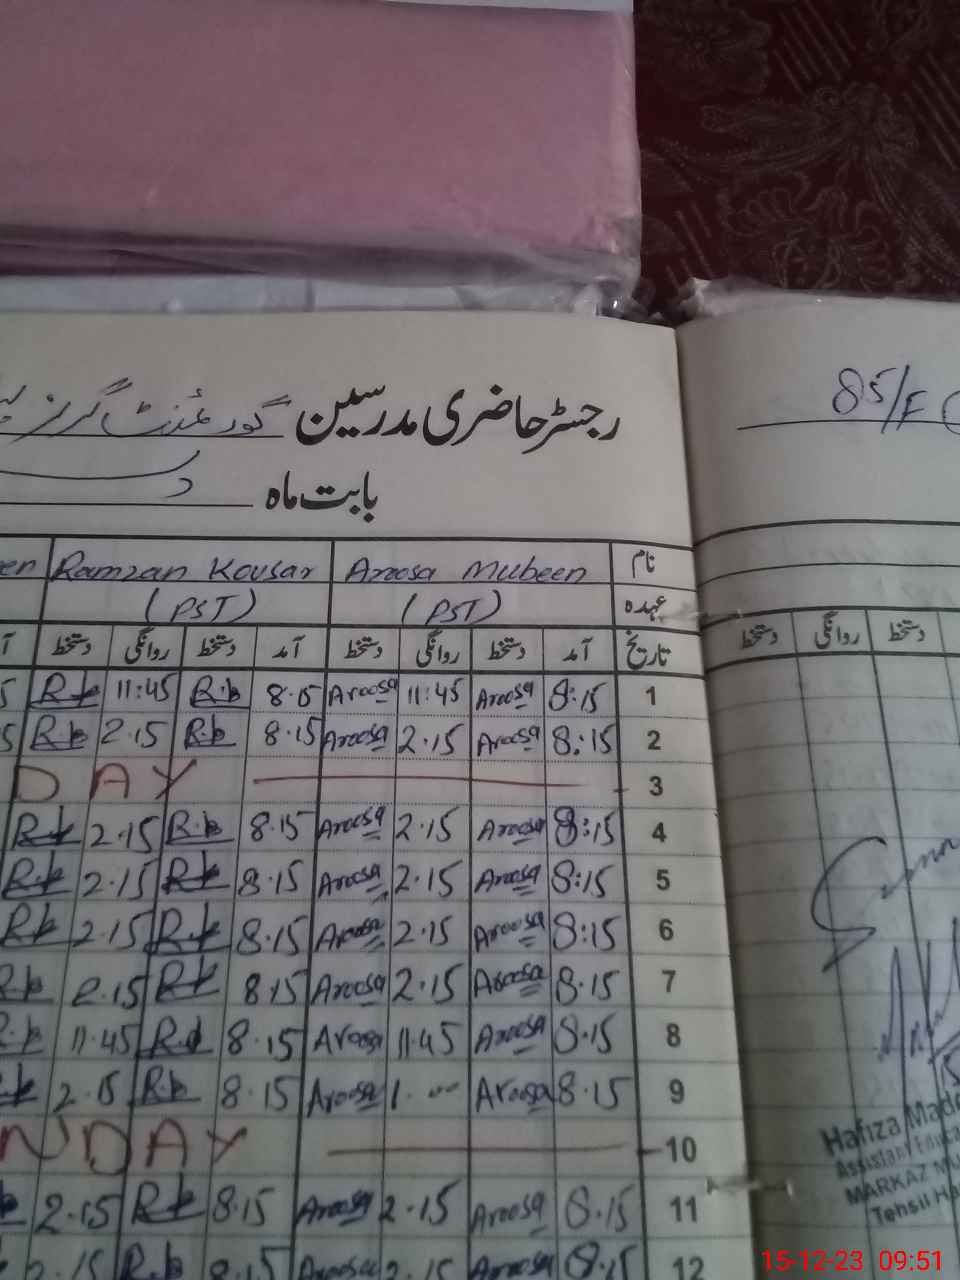 رجسٹر حاضری مدرسین گورنمنٹ گرلز
85/F
بابت ماہ
نام Aroosa Mubeen Ramzan Kousar en
عہدہ (PST) (PST)
تاریخ آمد دستخط روانگی دستخط آمد دستخط روانگی دستخط آ
دستخط روانگی دستخط
1 8:15 Aroosa 11:45 Aroosa 8.15 R.k 11:45 R.k 5
2 8:15 Aroosa 2.15 Aroosa 8.15 R.k 2.15 R.k 5
3 DAY
4 8:15 Aroosa 2.15 Aroosa 8.15 R.k 2.15 R.k
5 8:15 Aroosa 2.15 Aroosa 8.15 R.k 2.15 R.k
6 8:15 Aroosa 2.15 Aroosa 8.15 R.k 2.15 R.k
7 8.15 Aroosa 2.15 Aroosa 8.15 R.k 2.15 R.k
8 8.15 Aroosa 11.45 Aroosa 8.15 R.k 11.45 R.k
9 8.15 Aroosa 1.00 Aroosa 8.15 R.k 2.15 R.k
10 NDAY
11 8.15 Aroosa 2.15 Aroosa 8.15 R.k 2.15
12 8.15 Aroosa 2.15 Aroosa 8.15 R.k 2.15
Hafiza Made
Assistant Educa
MARKAZ MU
Tehsil Ha
15-12-23 09:51